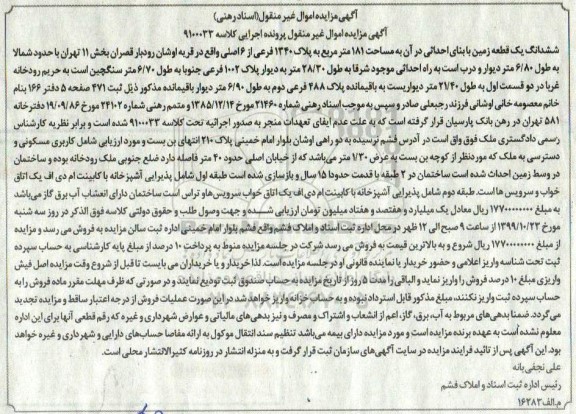 آگهی مزایده اموال غیر منقول(اسناد رهنی)
آگهی مزایده اموال غیر منقول پرونده اجرایی کلاسه ۹۱۰۰۰۳۳
ششدانگ یک قطعه زمین با بنای احداثی در آن به مساحت ۱۸۱ متر مربع به پلاک ۱۳۴۰ فرعی از ۶ اصلی واقع در قریه اوشان رودبار قصران بخش ۱۱ تهران با حدود شمالا
به طول ۶/۸۰ متر دیوار و درب است به راه احداثی موجود شرقا به طول ۲۸/۳۰ متر به دیوار پلاک ۱۰۰۲ فرعی جنوبا به طول ۶/۷۰ متر سنگچین است به حریم رودخانه
غربا در دو قسمت اول به طول ۲۱/۴۰ متر دیواریست به باقیمانده پلاک ۴۸۸ فرعی دوم به طول ۶/۹۰ متر دیوار باقیمانده مذکور ذیل ثبت ۴۷۱ صفحه ۵ دفتر ۱۶۶ بنام
خانم معصومه خانی اوشانی فرزند رجبعلی صادر و سپس به موجب اسناد رهنی شماره ۲۱۴۶۰ مورخ ۱۳۸۵/۱۲/۱۴ و متمم رهنی شماره ۲۴۱۰۲ مورخ ۱۹/۰۹/۸۶ دفترخانه
۵۸۱ تهران در رهن بانک پارسیان قرار گرفته است که به علت عدم ایفای تعهدات منجر به صدور اجرائیه تحت کلاسه ۹۱۰۰۰۳۳ شده است و برابر نظر به کارشناس
رسمی دادگستری ملک فوق واق است در آدرس فشم نرسیده به دو راهی اوشان بلوار امام خمینی پلاک ۲۱۰ انتهای بن بست و مورد ارزیابی شامل کاربری مسکونی و
دسترسی به ملک که موردنظر از کوچه بن بست به عرض ۱/۳۰ متر می‌باشد که از خیابان اصلی حدود ۴۰ متر فاصله دارد ضلع جنوبی ملک رودخانه بوده و ساختمان
در وسط زمین احداث شده است ساختمان در ۲ طبقه با قدمت حدود ۱۵ سال و بازسازی شده است طبقه اول شامل پذیرایی آشپزخانه با کابینت ام دی اف یک اتاق
خواب و سرویس ها است. طبقه دوم شامل پذیرایی آشپزخانه با کابینت ام دی اف یک اتاق خواب سرویس هاو تراس است ساختمان دارای انعشاب آب برق گاز می‌باشد
به مبلغ ۱۷۷۰۰۰۰۰۰۰۰ ریال معادل یک میلیارد و هفتصد و هفتاد میلیون تومان ارزیابی شده و جهت وصول طلب و حقوق دولتی کلاسه فوق الذکر در روز سه شنبه
مورخ ۱۳۹۹/۱۰/۲۳ از ساعت ۹ صبح الی ۱۲ ظهر در محل اداره ثبت اسناد و املاک فشم واقع فشم بلوار امام خمینی اداره ثبت سالن مزایده به فروش می رسد و مزایده
از مبلغ ۱۷۷۰۰۰۰۰۰۰۰ ریال شروع و به بالاترین قیمت به فروش می رسد شرکت در جلسه مزایده منوط به پرداخت ۱۰ درصد از مبلغ پایه کارشناسی به حساب سپرده
ثبت تحت شناسه واریز اعلامی و حضور خریدار یا نماینده قانونی او در جلسه مزایده است. لذا خریدار و یا خریداران می بایست تا قبل از شروع وقت مزایده اصل فیش
واریزی مبلغ ۱۰ درصد فروش را واریز نماید و الباقی را مدت ۵ روز از تاریخ مزایده به حساب صندوق ثبت تودیع نمایند و در صورتی که ظرف مهلت مقرر ماده فروش را به
حساب سپرده ثبت واریز نکنند، مبلغ مذکور قابل استرداد نبوده و به حساب خزانه واریز خواهد شد در این صورت عملیات فروش از درجه اعتبار ساقط و مزایده تجدید
می گردد. ضمنا بدهی‌های مربوط به آب، برق، گاز، اعم از انشعاب و اشتراک و مصرف و نیز بدهی‌های مالیاتی و عوارض شهرداری و غیره که رقم قطعی آنها برای این اداره
معلوم نشده است به عهده برنده مزایده است و مورد مزایده دارای بیمه می‌باشد تنظیم سند انتقال موکول به ارائه مفاصا حساب‌های دارایی و شهرداری و غیره خواهد
بود. این آگهی پس از تائید فرایند مزایده در سایت آگهی‌های سازمان ثبت قرار گرفت و به منزله انتشار در روزنامه کثیرالانتشار محلی است.
علی نجفی بانه
رئیس اداره ثبت اسناد و املاک فشم
م.الف ۱۶۲۸۳